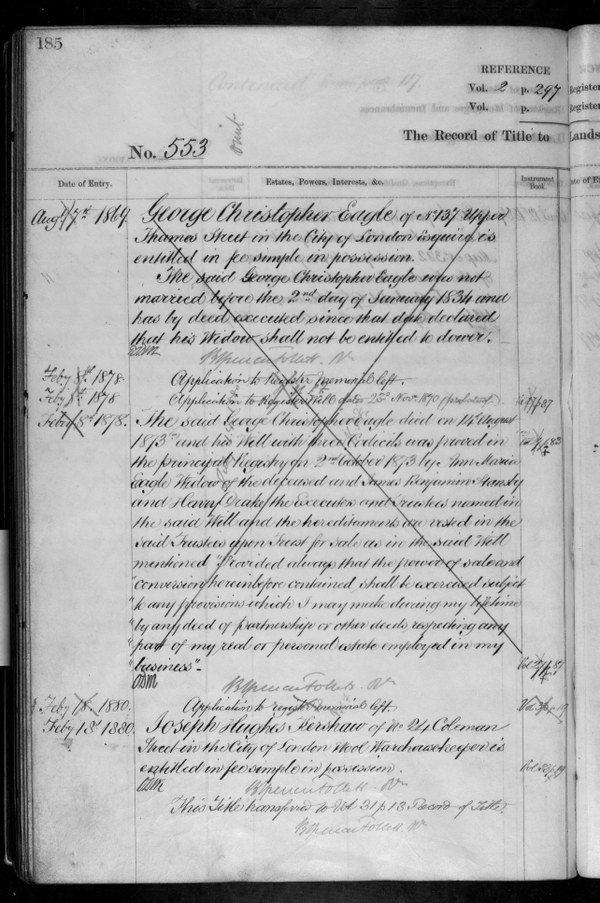 185
REFERENCE
Vol. 2 p. 297
Vol. p.
The Record of Title to Lands
No. 553
Date of Entry.
Estates, Powers, Interests, &c.
Instrument Book.
Augt 7th 1869. George Christopher Eagle of No 137 Upper
Thames Street in the City of London Esquire is
entitled in fee simple in possession.
The said George Christopher Eagle was not
married before the 2nd day of January 1834 and
has by deed executed since that date declared
that his Widow shall not be entitled to dower.
Feby 1878 Application to Register memorial left.
Feby 1878 Application to Register Will dated Novr 1870
Feby 8th 1878. The said George Christopher Eagle died on 14th August
1873 and his Will with three Codicils was proved in
the principal Registry on 2nd October 1873 by Ann Maria
Eagle Widow of the deceased and James Benjamin
and Henry Drake the Executors and Trustees named in
the said Will and the hereditaments are vested in the
said Trustees upon Trust for sale as in the said Will
mentioned "Provided always that the power of sale and
"conversion hereinbefore contained shall be exercised subject
"to any provisions which I may make during my lifetime
"by any deed of partnership or other deeds respecting any
"part of my real or personal estate employed in my
"business"-
Feby 1880. Application to register memorial left.
Feby 18th 1880. Joseph Hughes Kershaw of No 24 Coleman
Street in the City of London Wool Warehousekeeper is
entitled in fee simple in possession.
This Title transferred to Vol 31 p 13 Record of Title.